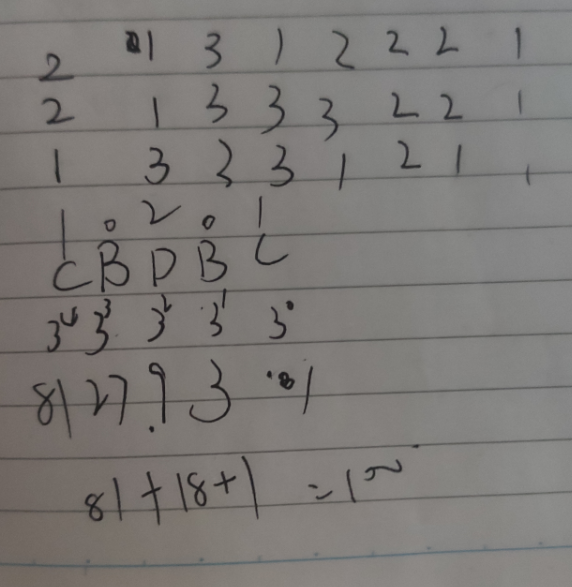 2 1 3 1 2 2 2 1
2 1 3 3 3 2 2 1
1 3 3 3 1 2 1 1
1 0 2 0 1
C B D B C
3⁴ 3³ 3² 3¹ 3⁰
81 27 9 3 1
81+18+1 =100